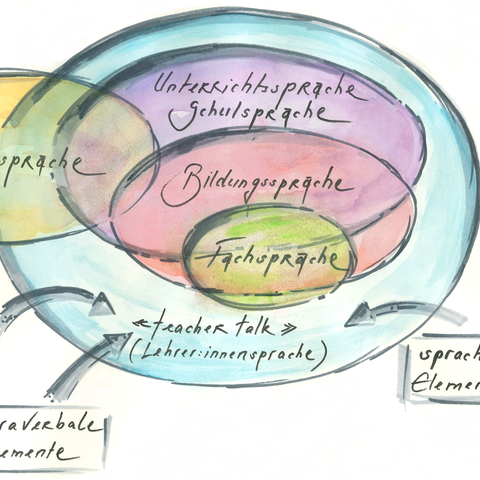 Unterrichtssprache
Schulsprache
sprache
Bildungssprache
Fachsprache
« teacher talk »
(Lehrer:innensprache)
sprach
Elemen
raverbale
emente